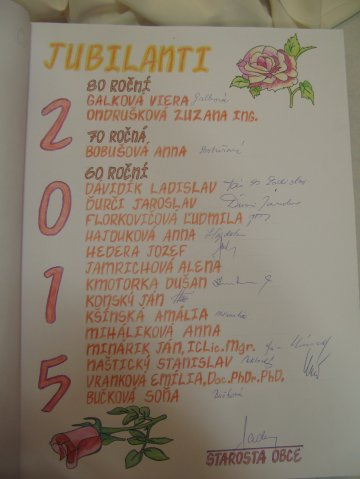 JUBILANTI
2015
80 ROČNÍ
GALKOVÁ VIERA Galková
ONDRUŠKOVÁ ZUZANA ING.
70 ROČNÁ
BOBUŠOVÁ ANNA Bobušová
60 ROČNÍ
DÁVIDIK LADISLAV
ĎURČI JAROSLAV
FLORKOVIČOVÁ ĽUDMILA
HAJDUKOVÁ ANNA
HEDERA JOZEF
JAMRICHOVÁ ALENA
KMOTORKA DUŠAN
KONSKÝ JÁN
KŠINSKÁ AMÁLIA
MIHÁLIKOVÁ ANNA
MINÁRIK JÁN, ICLic. Mgr.
NAŠTICKÝ STANISLAV
VRANKOVÁ EMÍLIA, Doc. PhDr. PhD.
BUČKOVÁ SOŇA Bučková
STAROSTA OBCE